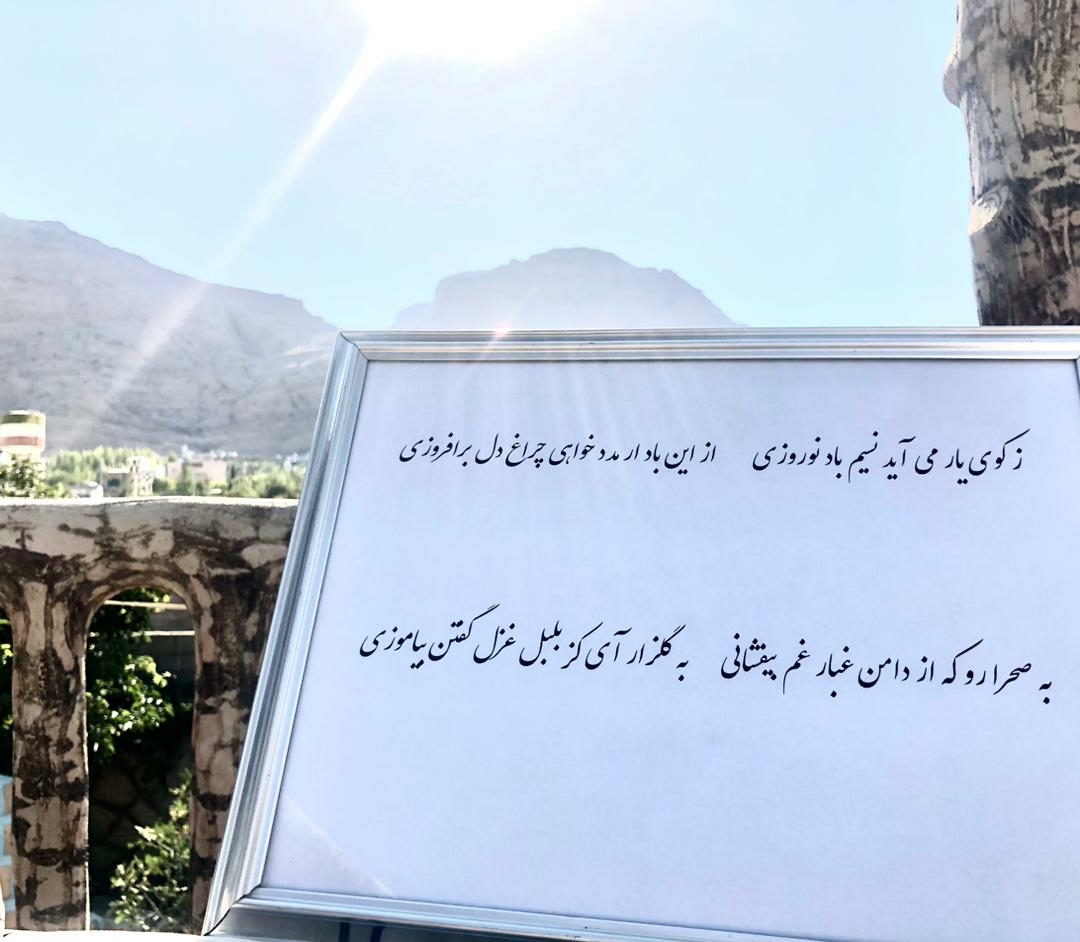 ز کوی یار می آید نسیم باد نوروزی از این باد ار مدد خواهی چراغ دل برافروزی
به صحرا رو که از دامن غبار غم بیفشانی به گلزار آی کز بلبل غزل گفتن بیاموزی